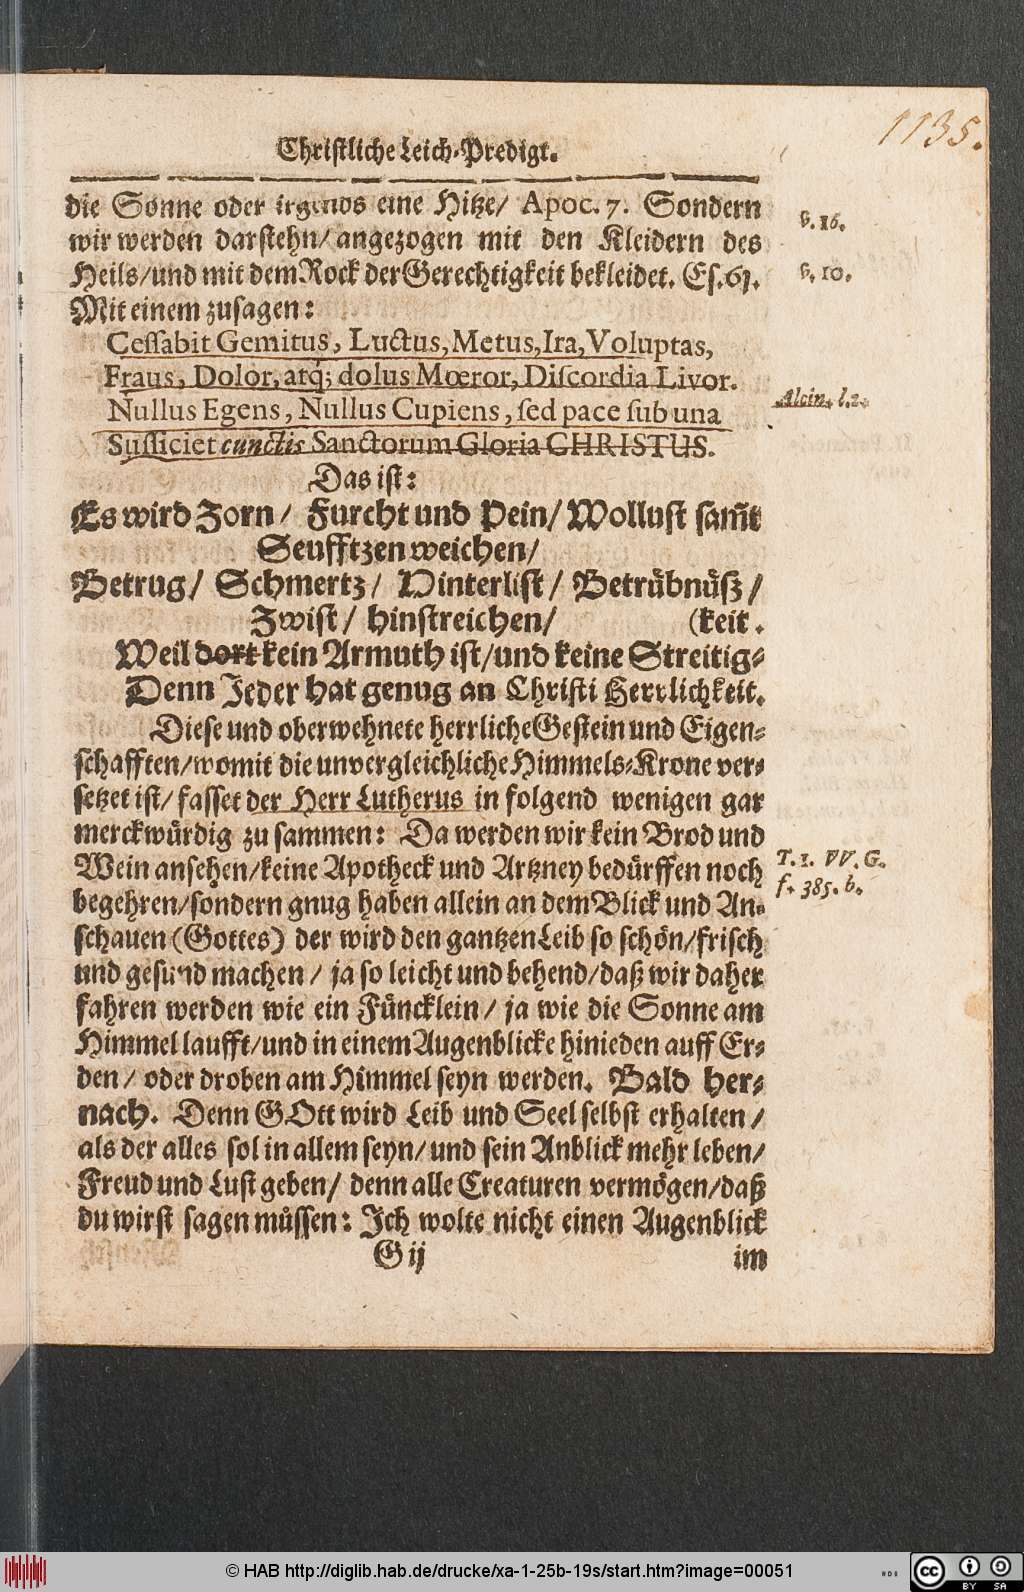 1135.
Christliche Leich-Predigt.
die Sonne oder irgends eine Hitze/ Apoc. 7. Sondern
v. 16.
wir werden darstehn/ angezogen mit den Kleidern des
Heils/und mit dem Rock der Gerechtigkeit bekleidet. Es. 61.
v. 10.
Mit einem zusagen:
Cessabit Gemitus, Luctus, Metus, Ira, Voluptas,
Fraus, Dolor, atq; dolus Mœror, Discordia Livor.
Nullus Egens, Nullus Cupiens, sed pace sub una
Alcin. l. 2.
Sufficiet cunctis Sanctorum Gloria CHRISTUS.
Das ist:
Es wird Zorn/ Furcht und Pein/ Wollust sam̃t
Seufftzen weichen/
Betrug/ Schmertz/ Hinterlist/ Betrübnüß/
Zwist/ hinstreichen/ (keit.
Weil dort kein Armuth ist/und keine Streitig-
Denn Jeder hat genug an Christi Herrlichkeit.
Diese und oberwehnete herrliche Gestein und Eigen-
schafften/womit die unvergleichliche Himmels-Krone ver-
setzet ist/ fasset der Herr Lutherus in folgend wenigen gar
merckwürdig zu sammen: Da werden wir kein Brod und
Wein ansehen/keine Apotheck und Artzney bedürffen noch
T. 1. VV. G.
f. 385. b.
begehren/sondern gnug haben allein an dem Blick und An-
schauen (Gottes) der wird den gantzen Leib so schön/frisch
und gesund machen/ ja so leicht und behend/daß wir daher
fahren werden wie ein Füncklein/ ja wie die Sonne am
Himmel laufft/und in einem Augenblicke hinieden auff Er-
den/ oder droben am Himmel seyn werden. Bald her-
nach. Denn GOtt wird Leib und Seel selbst erhalten/
als der alles sol in allem seyn/und sein Anblick mehr leben/
Freud und Lust geben/ denn alle Creaturen vermögen/daß
du wirst sagen müssen: Ich wolte nicht einen Augenblick
G ij im
© HAB http://diglib.hab.de/drucke/xa-1-25b-19s/start.htm?image=00051
cc BY SA